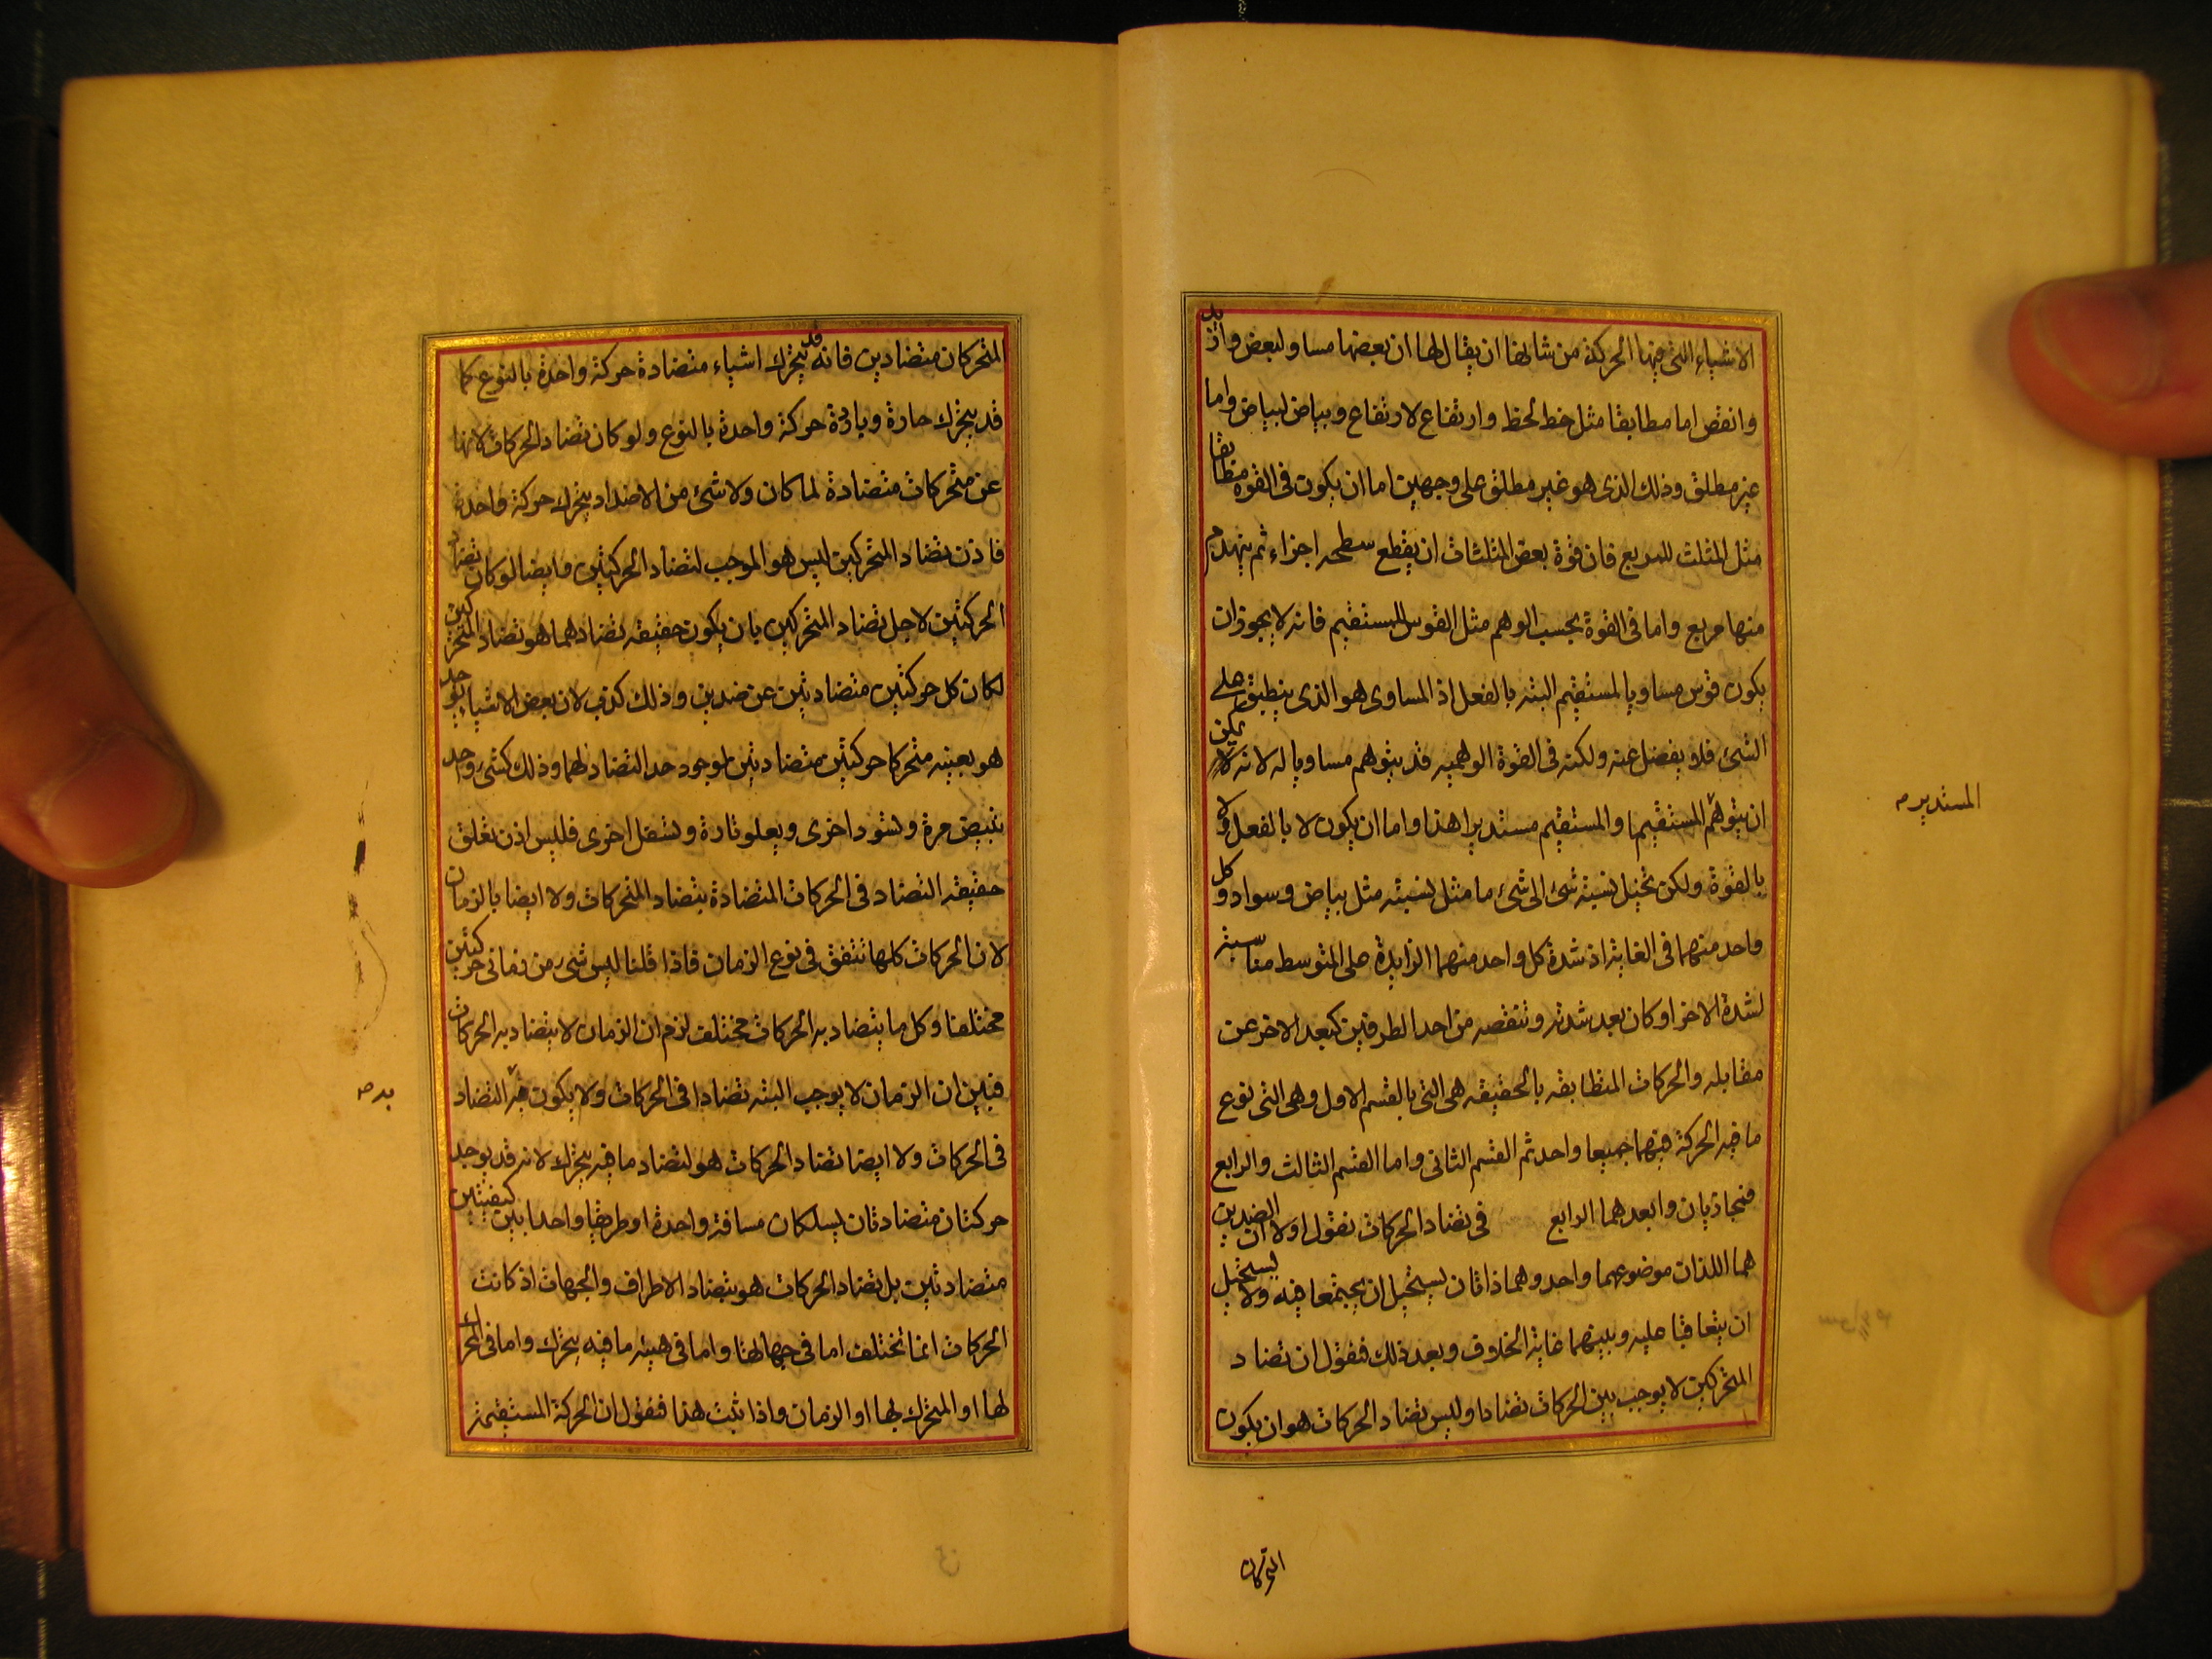 الاشياء التى فيها الحركة من شانها ان يقال لها ان بعضها مساو لبعض وازيد
وانقص اما مطابقا مثل خط لخط وارتفاع لارتفاع وبياض لبياض واما
غير مطلق وذلك الذى هو غير مطلق على وجهين اما ان يكون فى القوه مطابقا
مثل المثلث للمربع فان قوة بعض المثلثات ان يقطع سطحه اجزاء ثم يهندم
منها مربع واما فى القوة بحسب الوهم مثل القوس للمستقيم فانه لا يجوز ان
يكون قوس مساويا لمستقيم البته بالفعل اذ المساوى هو الذى ينطبق على
الشئ فلا يفضل عنه ولكنه فى القوة الوهميه قد يتوهم مساويا له لانه لا يمكن
ان يتوهم المستقيما والمستقيم مستديرا هذا واما ان يكون لا بالفعل ولا
المستدير صح
بالقوة ولكن تخيل نسبته شئ الى شئ ما مثل نسبته مثل بياض وسواد وكل
واحد منهما فى الغاية اذ شدة كل واحد منهما الزايدة على المتوسط مناسبة
لشدة الاخر او كان بعد شدته وتنقصه من احد الطرفين كبعد الاخر عن
مقابله والحركات المتطابقه بالحقيقه هى التى بالقسم الاول وهى التى نوع
ما فيه الحركة فيها جميعا واحد ثم القسم الثانى واما القسم الثالث والرابع
فمجازيان وابعدهما الرابع فى تضاد الحركات نقول اولا ان الضدين
هما اللذان موضوعهما واحد وهما ذاتان يستحيل ان يجتمعا فيه ولا يستحيل
ان يتعاقبا عليه وبينهما غاية الخلاف وبعد ذلك فنقول ان تضاد
المتحركين لا يوجب بين الحركات تضادا وليس تضاد الحركات هو ان يكون
المتحركان
المتحركان متضادين فانه قد يتحرك اشياء متضادة حركة واحدة بالنوع كما
قد يتحرك حارة وباردة حركة واحدة بالنوع ولو كان تضاد الحركات لانها
عن متحركات متضادة لما كان ولا شئ من الاضداد يتحرك حركة واحدة
فاذن تضاد المتحركين ليس هو الموجب لتضاد الحركتين وايضا لو كان تضاد
الحركتين لاجل تضاد المتحركين بان يكون حقيقه تضادهما هو تضاد المتحركين
لكان كل حركتين متضادتين عن ضدين وذلك كذب لان بعض الاشيا يوجد
هو بعينه متحركا حركتين متضادتين لوجود حد التضاد لهما وذلك كشئ واحد
يتبيض مرة ويتسود اخرى ويعلو تارة ويتسفل اخرى فليس اذن تعلق
حقيقه التضاد فى الحركات المتضادة بتضاد المتحركات ولا ايضا بالزمان
لان الحركات كلها تتفق فى نوع الزمان فاذا قلنا ليس شئ من زمانى حركتين
مختلفا وكل ما يتضاد به الحركات مختلف لزم ان الزمان لا يتضاد به الحركات
فبين ان الزمان لا يوجب البته تضادا فى الحركات ولا يكون فيه التضاد
به صح
فى الحركات ولا ايضا تضاد الحركات هو لتضاد ما فيه يتحرك لانه قد يوجد
حركتان متضادتان يسلكان مسافة واحدة او طريقا واحدا بين كيفيتين
متضادتين بل تضاد الحركات هو بتضاد الاطراف والجهات اذ كانت
الحركات انما تختلف اما فى جهاتها واما فى هيئه ما فيه يتحرك واما فى المحرك
لها او المتحرك بها او الزمان واذا ثبت هذا فنقول ان الحركة المستقيمة